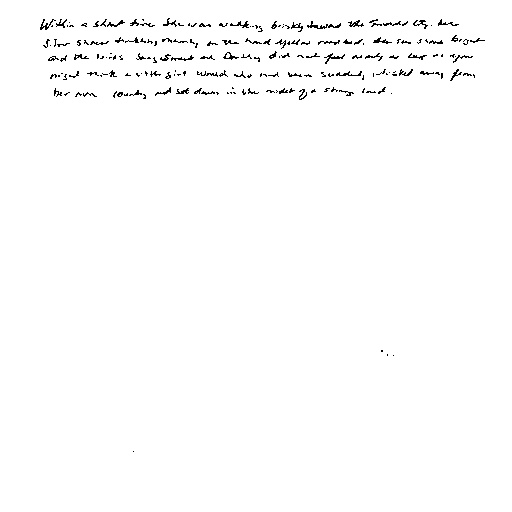 Within a short time she was walking briskly toward the Emerald City. Her
Silver Shoes tinkling merrily on the hard yellow road bed. The sun shone bright
and the birds sang sweet and Dorothy did not feel nearly as bad as you
might think a little girl would who had been suddenly whisked away from
her own country and set down in the midst of a strange land.